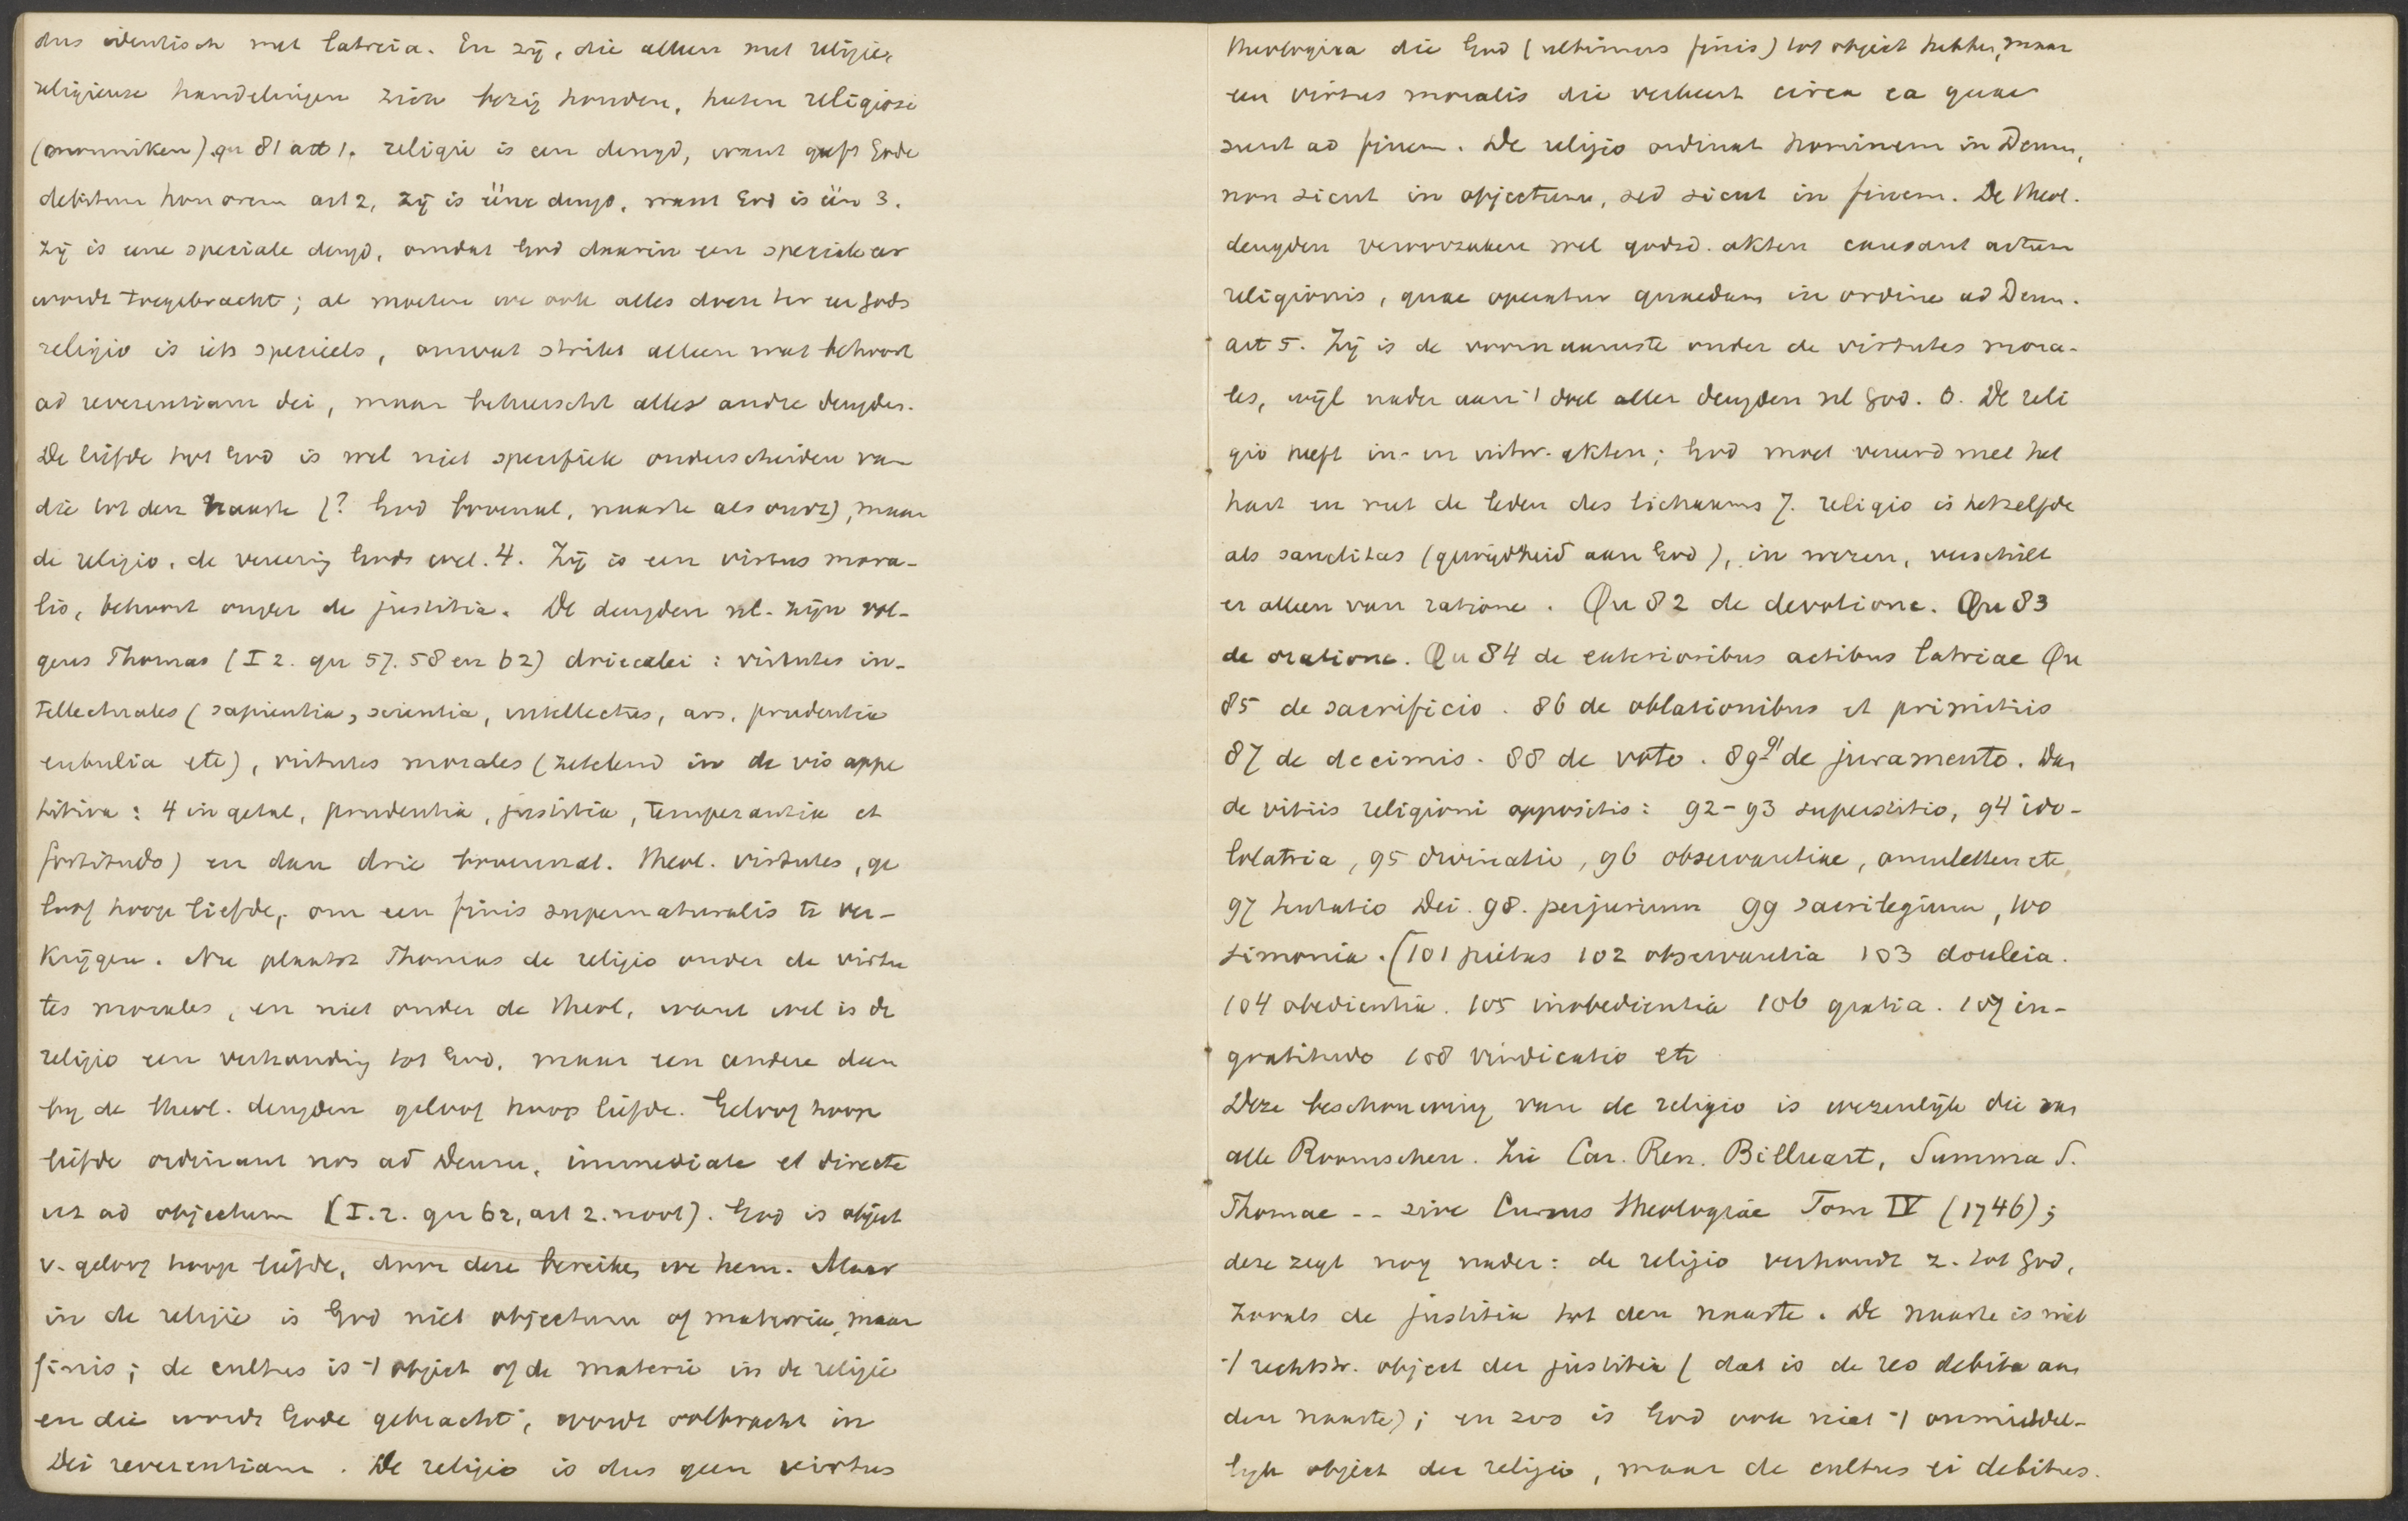 dus identisch met latreia. En zij, die alleen met religie,
religieuse handelingen zich bezig houden, heten religiosi
(monniken) qu 81 art 1. religie is een deugd, want geeft Gode
debitum honorem art 2, zij is ééne deugd, want God is één 3.
zij is eene speciale deugd, omdat God daarin een speciale eer
wordt toegebracht; al moeten we ook alles doen ter eer Gods
religio is iets specieels, omvat strikt alleen wat behoort
ad reverentiam dei, maar beheerscht alles andre deugden.
De liefde tot God is wel niet specifiek onderscheiden van
die tot den naaste (? God bovenal, naaste als onze), maar
de religio, de vereering Gods wel. 4. Zij is een virtus mora-
lis, behoort onder de justitia. De deugden nl. zijn vol-
gens Thomas (I 2. qu 57. 58 en 62) drieerlei: virtutes in-
tellectuales (sapientia, scientia, intellectus, ars, prudentia
eubulia etc), virtutes morales (zetelend in de vis appe
titiva: 4 in getal, prudentia, justitia, temperantia et
fortitudo) en dan drie bovennat. theol. virtutes, ge
loof hoop liefde, om een finis supernaturalis te ver-
krijgen. Nu plaatst Thomas de religio onder de virtu
tes morales, en niet onder de theol, want wel is de
religio een verhouding tot God, maar een andere dan
bij de theol. deugden geloof hoop liefde. Geloof hoop
liefde ordinant nos ad Deum, immediate et directe
ut ad objectum (I. 2. qu 62, art 2. noot). God is object
v. geloof hoop liefde, door deze bereiken we hem. Maar
in de religie is God niet objectum of materia, maar
finis; de cultus is 't object of de materie in de religie
en die wordt Gode gebracht, wordt volbracht in
Dei reverentiam. De religio is dus geen virtus
theologica die God (ultimus finis) tot object hebben, maar
een virtus moralis die verkeert circa ea quae
sunt ad finem. De religio ordinat hominem in Deum,
non sicut in objectum, sed sicut in finem. De theol.
deugden veroorzaken wel godsd. akten causant actum
religionis, quae operatur quaedam in ordine ad Deum.
art 5. Zij is de voornaamste onder de virtutes mora-
les, wijl nader aan 't doel aller deugden nl God. 6. De reli
gio heeft in- en uitw. akten; God moet vereerd met het
hart en met de leden des lichaams 7. religio is hetzelfde
als sanctitas (gewijdheid aan God), in wezen, verschilt
er alleen van ratione. Qu 82 de devotione. Qu 83
de oratione. Qu 84 de exterioribus actibus latriae Qu
85 de sacrificio. 86 de oblationibus et primitiis
87 de decimis. 88 de voto. 89-91 de juramento. Dan
de vitiis religioni oppositis: 92-93 superstitio, 94 ido-
lolatria, 95 divinatio, 96 observantiae, amuletten etc,
97 tentatio Dei. 98. perjurium 99 sacrilegium, 100
simonia. (101 pietas 102 observantia 103 douleia.
104 obedientia. 105 inobedientia 106 gratia. 107 in-
gratitudo 108 vindicatio etc
Deze beschouwing van de religio is wezenlijk die van
alle Roomschen. Zie Car. Ren. Billuart, Summa S.
Thomae -- sive Cursus theologiae Tom IV (1746);
deze zegt nog nader: de religio verhoudt z. tot God,
zooals de justitia tot den naaste. De naaste is niet
't rechtstr. object der justitia (dat is de res debita aan
den naaste); en zoo is God ook niet 't onmiddel-
lijk object der religio, maar de cultus ei debitus.